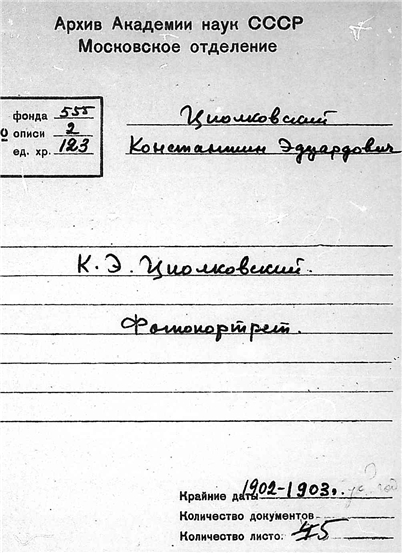 Архив Академии наук СССР
Московское отделение
фонда 555
описи 2
ед. хр. 123
Циолковский
Константин Эдуардович
К. Э. Циолковский.
Фотопортрет.
Крайние даты 1902-1903г.
Количество документов
Количество листо: